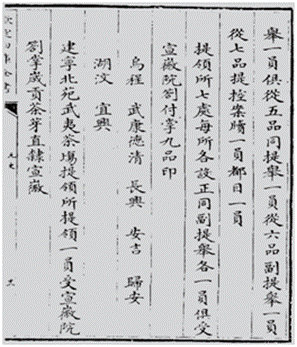 舉一員俱從五品同提舉一員從六品副提舉一員
從七品提控案牘一員都目一員
提領所七處每所各設正同副提舉各一員俱受
宣徽院劄付掌九品印
烏程 武康德清 長興 安吉 歸安
湖汶 宜興
建寧北苑武夷茶場提領所提領一員受宣徽院
劄掌歲貢茶芽直隸宣徽
欽定四庫全書
元史